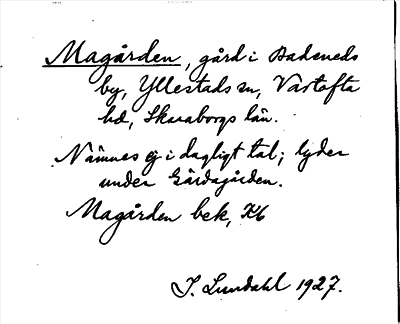 Magården, gård i Badeneds
by, Yllestads sn, Vartofta
hd, Skaraborgs län.
Nämnes ej i dagligt tal; lyder
under Gärdsgården.
Magården bek,
I. Lundahl 1927.